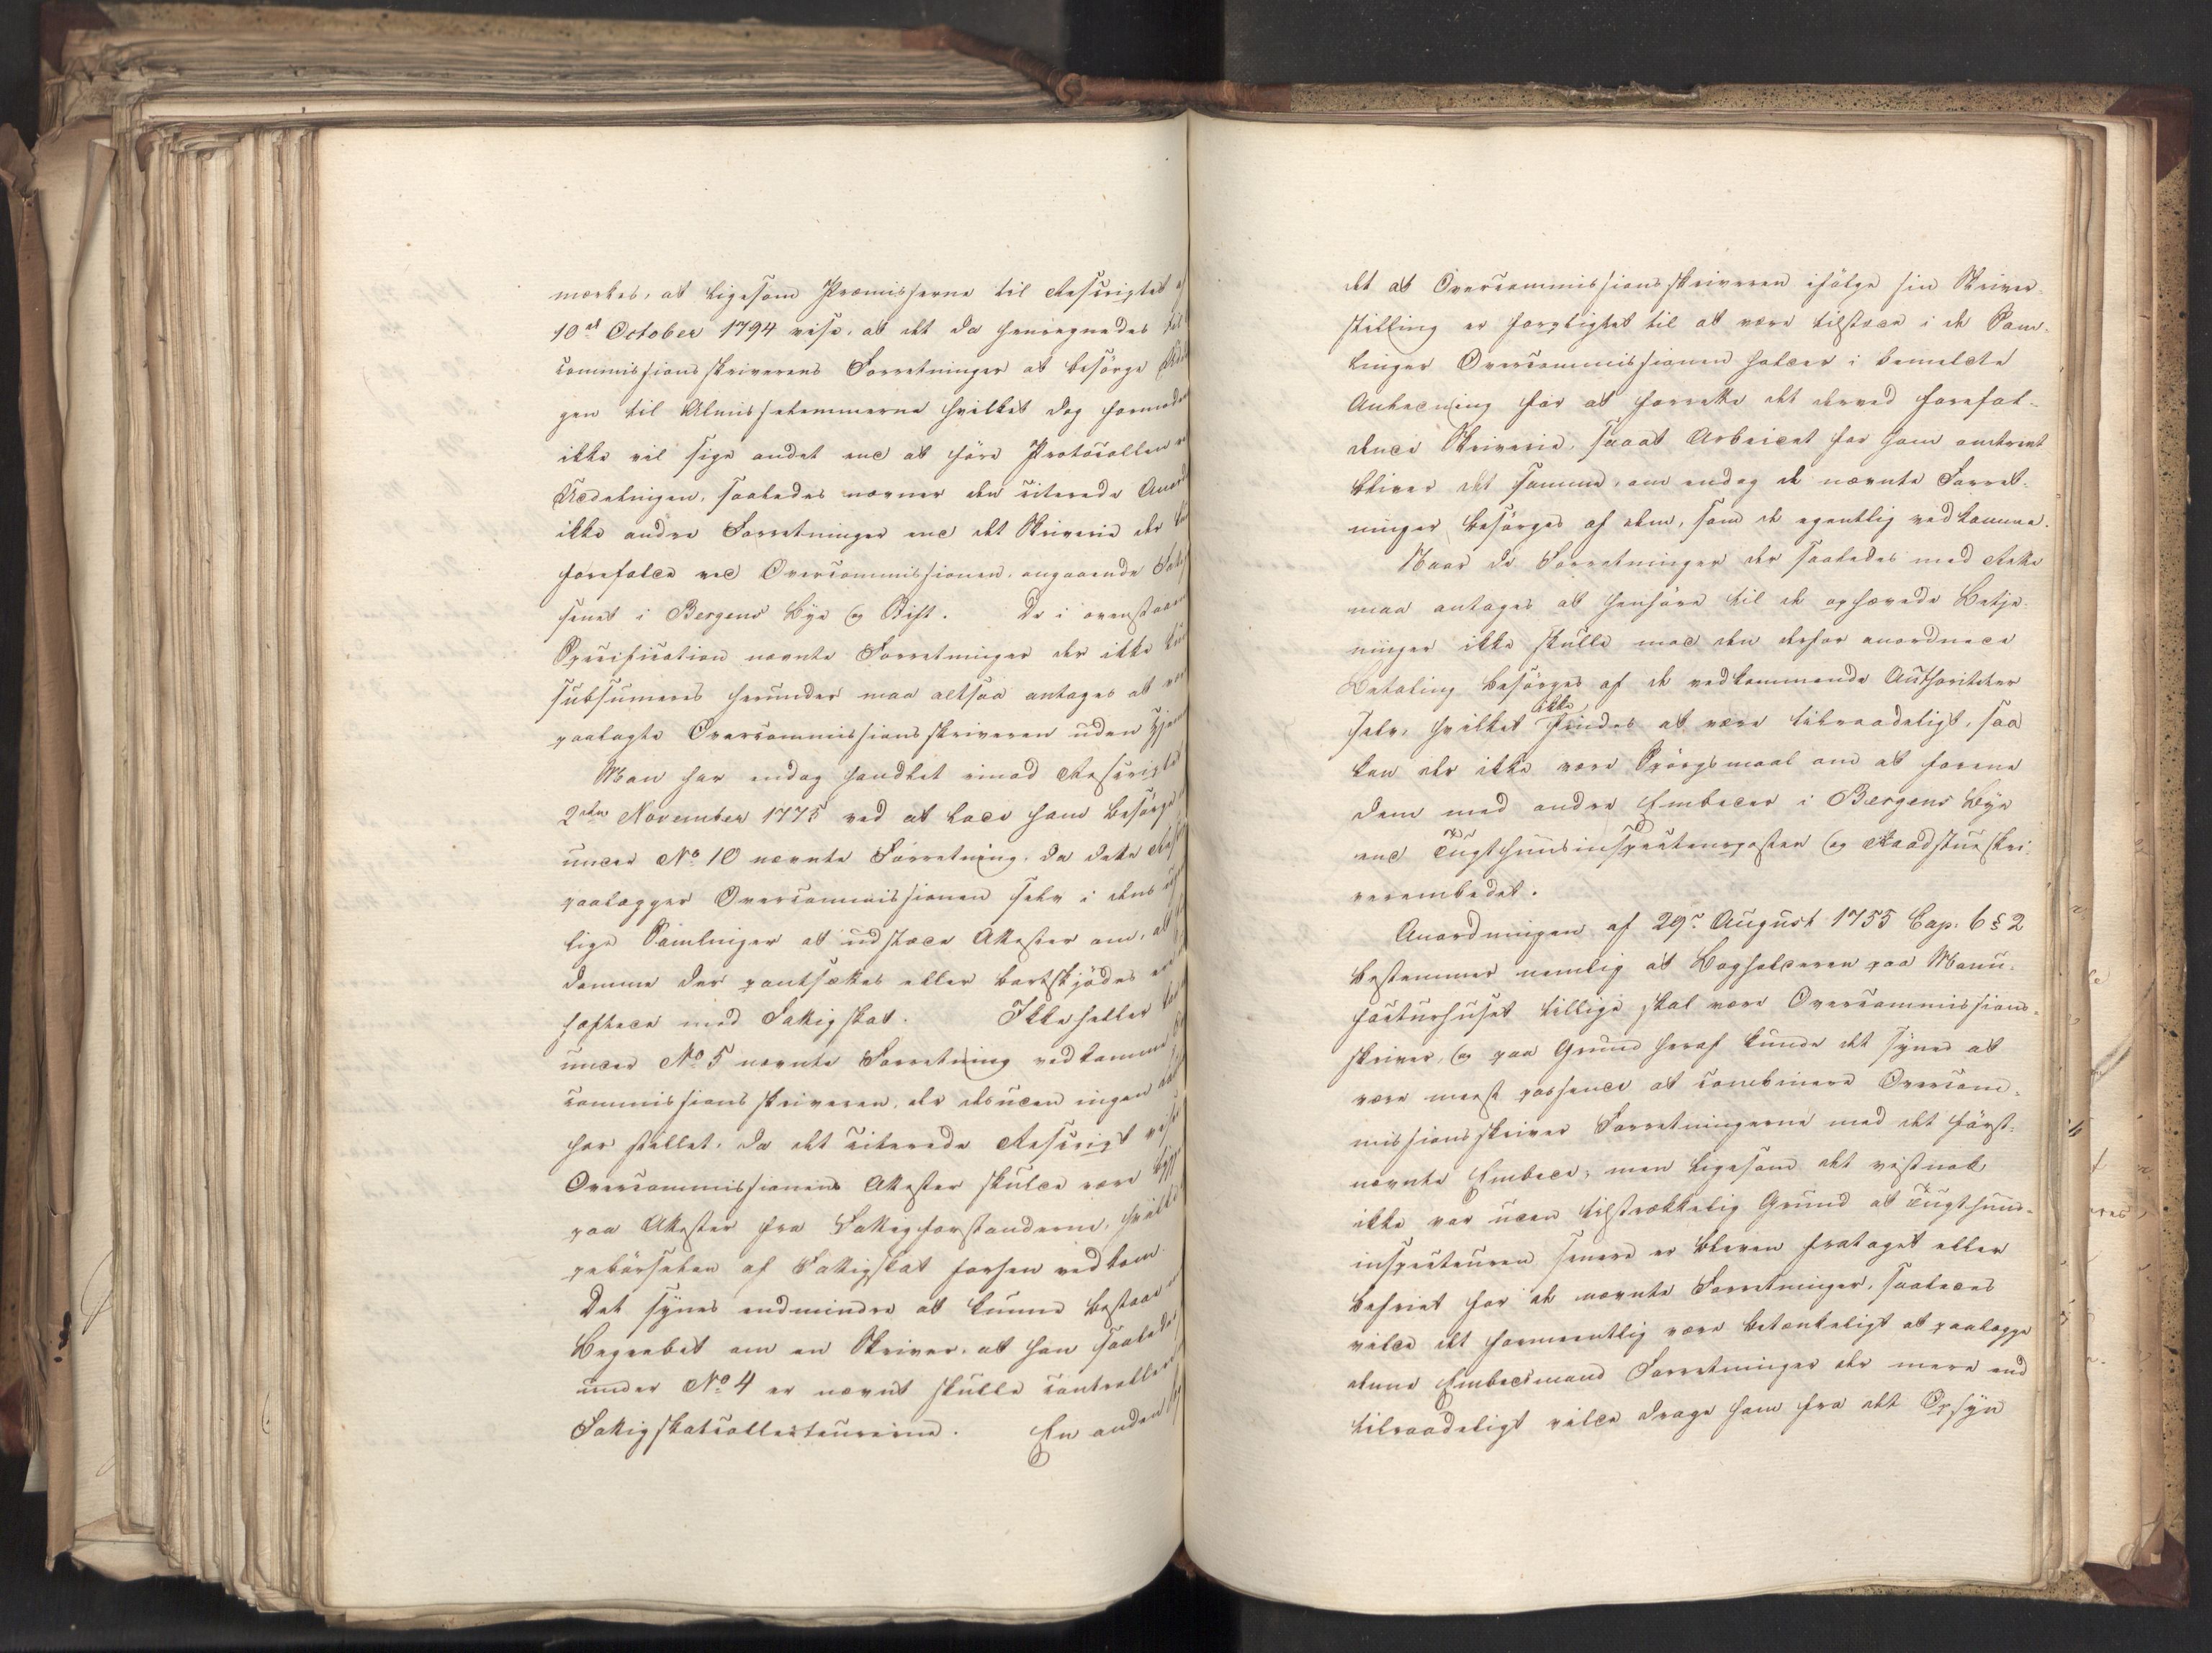 mærkes, at ligesom Præmisserne til Rescriptet af
10de October 1794 vise, at det da henregnedes til
commissionsskriverens Forretninger at besørge
gen til Almisselemmerne hvilket dog formodentlig
ikke vil sige andet end at føre Protocollen
Uddelingen, saaledes nævner den citerede
ikke andre Forretninger end det Skriverie der
forefalde ved Overcommissionen, angaaende
senet i Bergens Bye og Stift. De i ovenstaaende
Specification nævnte Forretninger der ikke
subsumeres herunder maa altsaa antages at
paalagte Overcommissionsskriveren uden
Man har endog handlet imod Rescriptet
2den November 1775 ved at lade ham besørge
under No 10 nævnte Forretning, da dette
paalægger Overcommissionen selv i dens
lige Samlinger at udstæde Attester om, at
domme der pantsættes eller bortskjødes
heftede med Fattigskat. Ikke heller
under No 5 nævnte Forretning vedkomme
commissionsskriveren, der desuden ingen
har stillet, da det citerede Rescript
Overcommissionens Attester skulde være
paa Attester fra Fattigforstanderne,
gebørheten af Fattigskat forsen vedkom
Det synes endmindre at kunne bestaae
Begrebet om en Skriver, at han saaledes
under No 4 er nævnt skulle controllere
Fattigskatcollecteurerne. En anden
det at Overcommissionsskriveren ifølge sin Skriver-
stilling er forpligtet til at være tilstæde i de Sam-
linger Overcommissionen holder i bemeldte
Anledning for at forrette det derved forefal-
dende Skriverie, saa at Arbeidet for ham omtrent
bliver det samme, om endog de nævnte Forret-
ninger besørges af dem, som de egentlig vedkomme.
Naar de Forretninger der saaledes med Rette
maa antages at henhøre til de ophævede Betje-
ninger ikke skulle mod den derfor anordnede
Betaling besørges af de vedkommende Authoriteter
selv, hvilket ikke findes at være tilraadeligt, saa
kan der ikke være Spørgsmaal om at forene
dem med andre Embeder i Bergens Bye
end Tugthuusinspecteurposten og Raadstueskri-
verembedet.
Anordningen af 29r August 1755 Cap: 6 § 2
bestemmer nemlig at Bogholderen paa Manu-
facturhuset tillige skal være Overcommissions-
skriver, og paa Grund heraf kunde det synes at
være meest passende at combinere Overcom-
missionsskriver Forretningerne med det først-
nævnte Embede; men ligesom det vistnok
ikke var uden tilstrækkelig Grund at Tugthuus-
inspecteuren senere er bleven frataget eller
befriet for de nævnte Forretninger, saaledes
vilde det formeentlig være betænkeligt at paalægge
denne Embedsmand Forretninger der mere end
tilraadeligt vilde drage ham fra det Opsyn